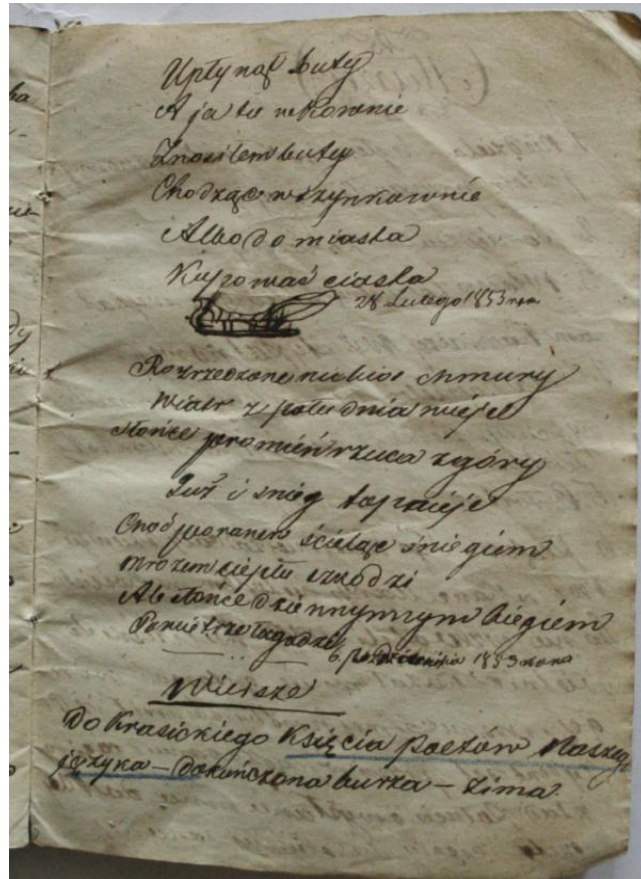 Upłynął luty
A ja tu
Znosiłem buty
Chodząc w szynkownie
Albo do miasta
Kupować ciasta
28 Lutego 1853 roku
Rozrzedzone niebios chmury
Wiatr z południa wieje
słońce promień rzuca z góry
Już i śnieg topnieje
Choć poranem ścieląc śniegiem
mrozem ciepłu szkodzi
Ale słońce dziennym swym biegiem
Powietrze łagodzi
6 1853 roku
Wiersze
Do Krasickiego Księcia poetów Naszego
języka – dokończona burza – zima.